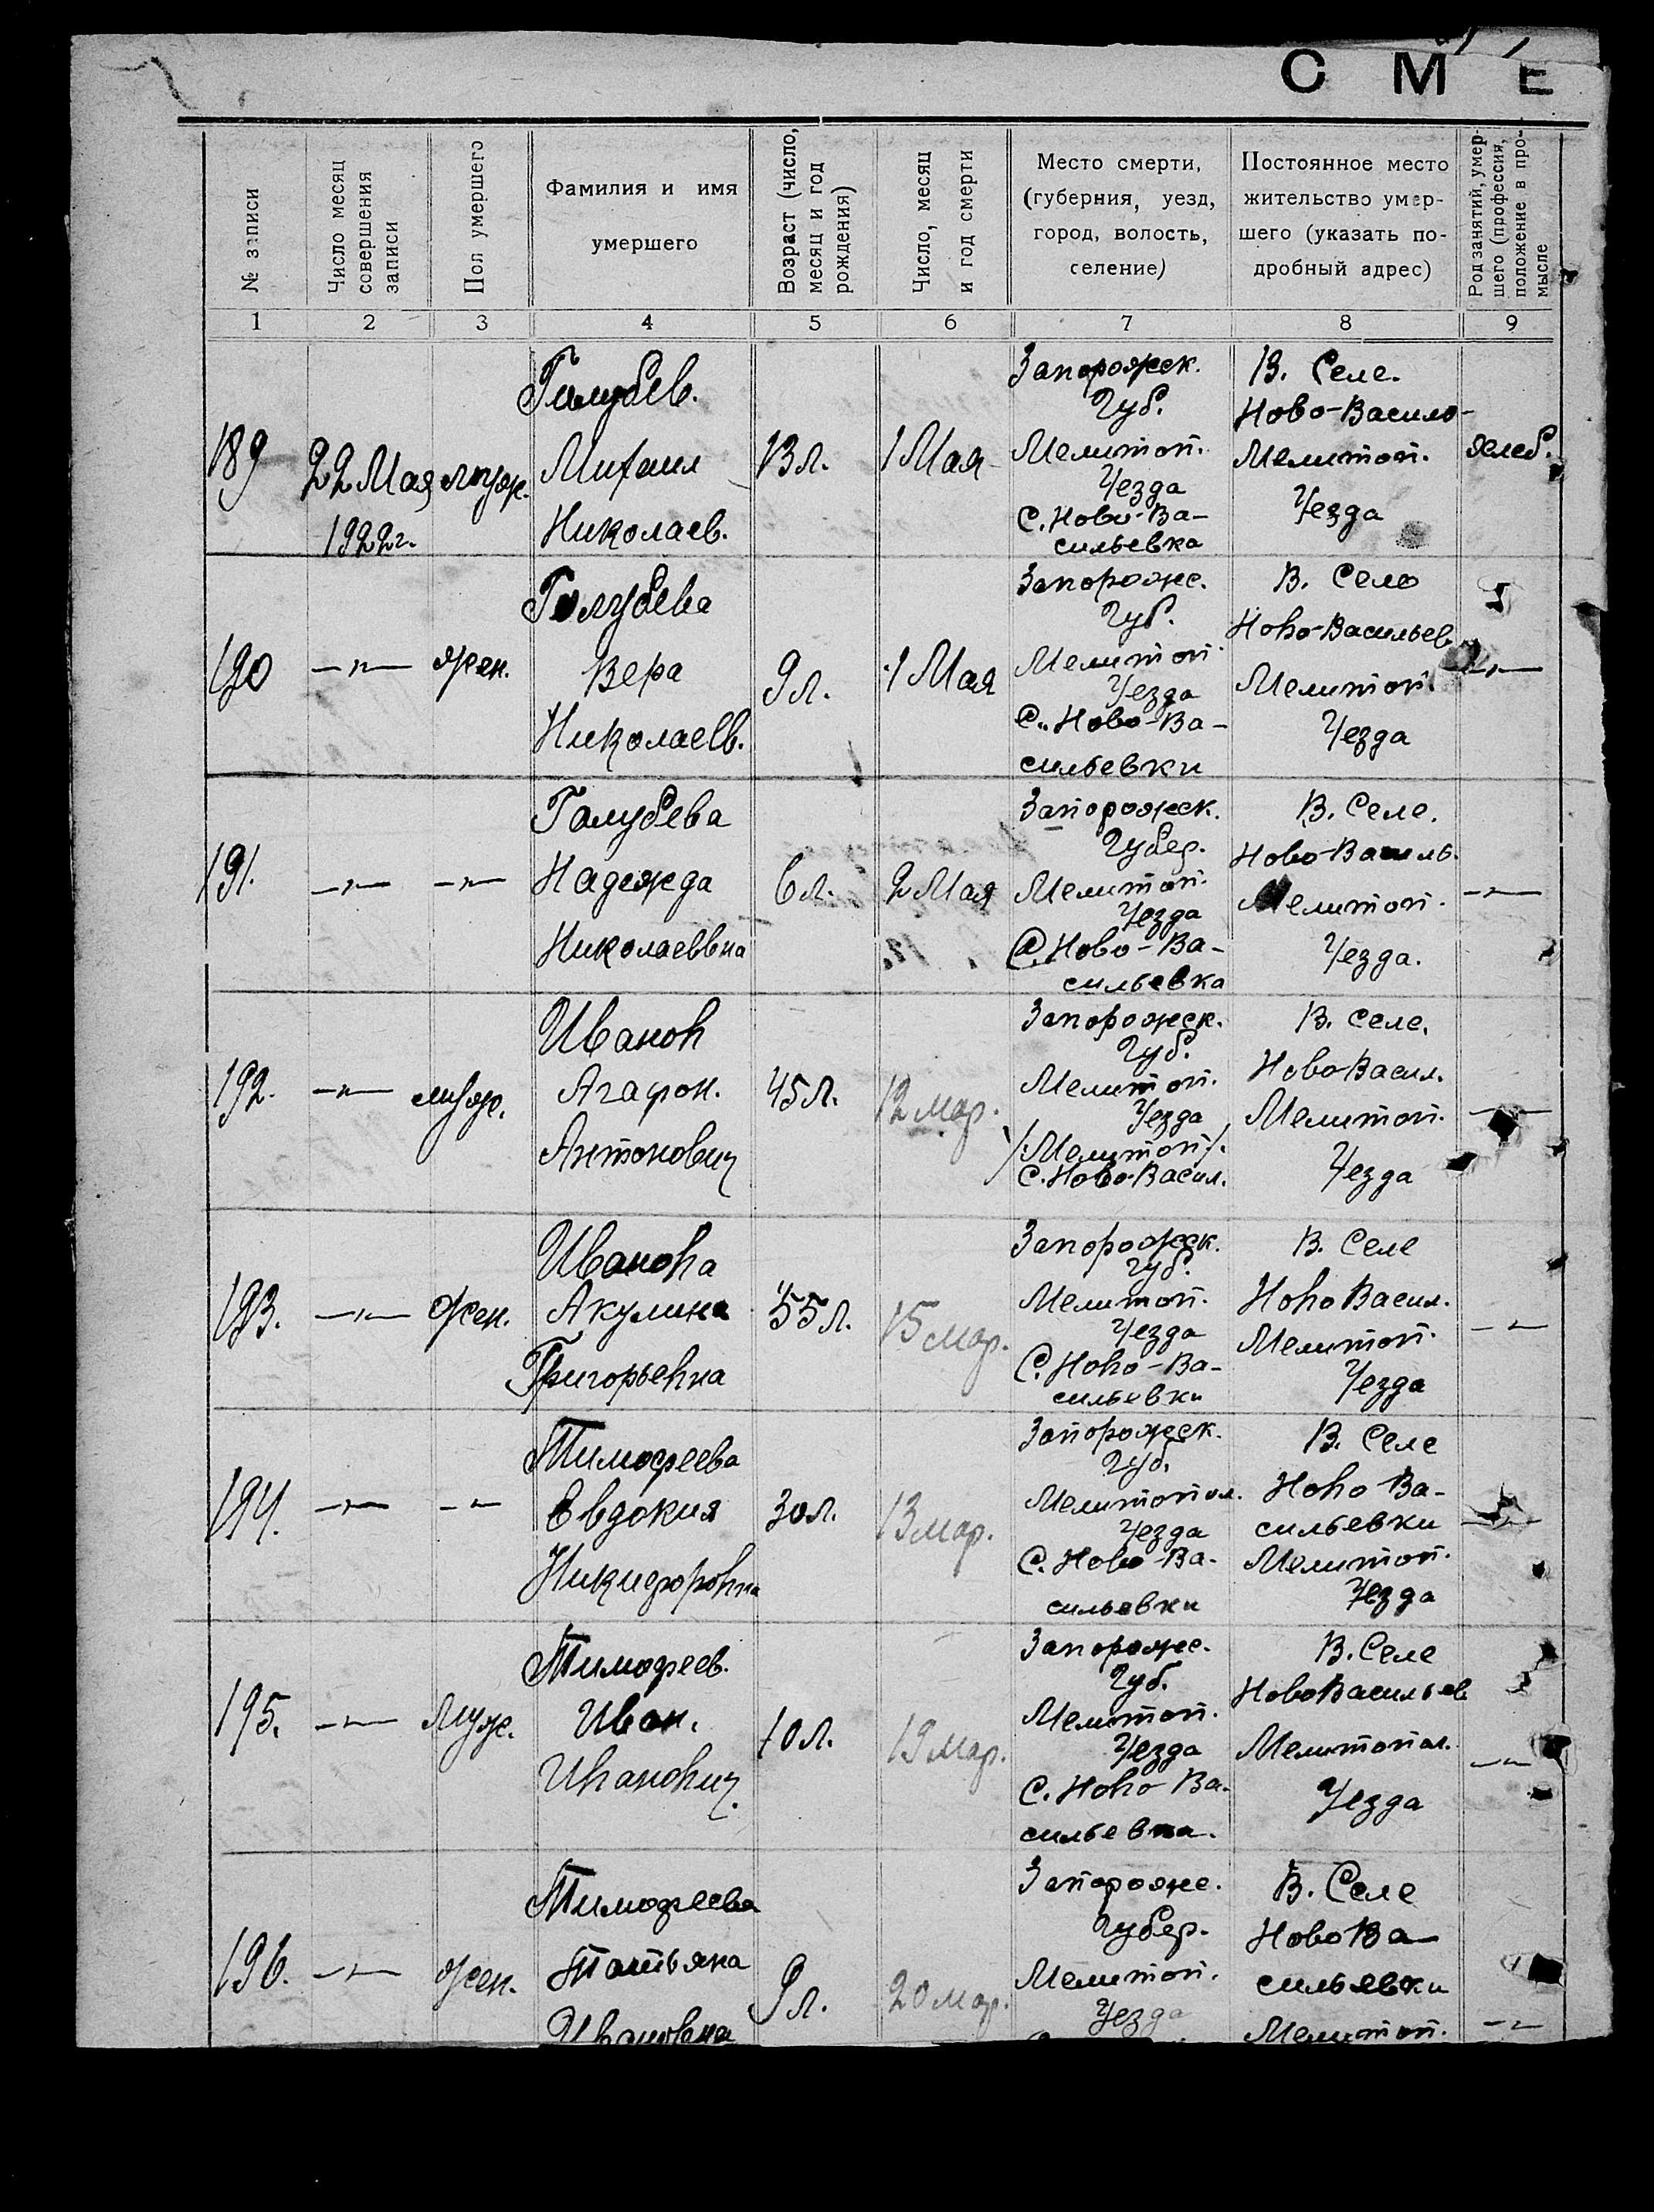 С М Е
№ записи
Число месяц совершения записи
Пол умершего
Фамилия и имя умершего
Возраст (число, месяц и год рождения)
Число, месяц и год смерти
Место смерти, (губерния, уезд, город, волость, селение)
Постоянное место жительство умершего (указать подробный адрес)
Род занятий, умершего (профессия, положение в промысле
1 2 3 4 5 6 7 8 9
189
22 Мая
1922г.
муж.
Голубев.
Михаил
Николаев.
13 л.
1 Мая
Запорожск.
Губ.
Мелитоп.
Уезда
С. Ново-Ва-
сильевка
В. Селе.
Ново-Василь-
Мелитоп.
Уезда
хлеб.
190
—"—
жен.
Голубева
Вера
Николаевв.
9 л.
1 Мая
Запорожс.
Губ.
Мелитоп.
Уезда
С. Ново-Ва-
сильевки
В. Село
Ново-Васильев.
Мелитоп.
Уезда
—"—
191.
—"—
—"—
Голубева
Надежда
Николаеввна
6 л.
2 Мая
Запорожск.
Губер.
Мелитоп.
Уезда
С. Ново-Ва-
сильевка
В. Селе.
Ново-Василь.
Мелитоп.
Уезда.
—"—
192.
—"—
муж.
Иванов
Агафон.
Антонович
45 л.
12 мар.
Запорожск.
Губ.
Мелитоп.
Уезда
/Мелитоп/.
С. Ново-Васил.
В. селе.
Ново Васил.
Мелитоп.
Уезда
—"—
193.
—"—
жен.
Иванова
Акулина
Григорьевна
55 л.
15 мар.
Запорожск.
Губ.
Мелитоп.
Уезда
С. Ново-Ва-
сильевки
В. Селе
Ново Васил.
Мелитоп.
Уезда
—"—
194.
—"—
—"—
Тимофеева
Евдокия
Никифоровна
30 л.
13 мар.
Запорожск.
Губ.
Мелитопол.
Уезда
С. Ново-Ва-
сильевки
В. Селе
Ново Ва-
сильевки
Мелитоп.
Уезда
—"—
195.
—"—
Муж.
Тимофеев.
Иван.
Иванович.
10 л.
19 мар.
Запорожс.
Губ.
Мелитоп.
Уезда
С. Ново Ва-
сильевка.
В. Селе
Ново Васильев
Мелитопол.
Уезда
—"—
196.
—"—
жен.
Тимофеева
Татьяна
Ивановна
9 л.
20 мар.
Запорожс.
Губер.
Мелитоп.
Уезда
В. Селе
Ново Ва-
сильевки
Мелитоп.
—"—